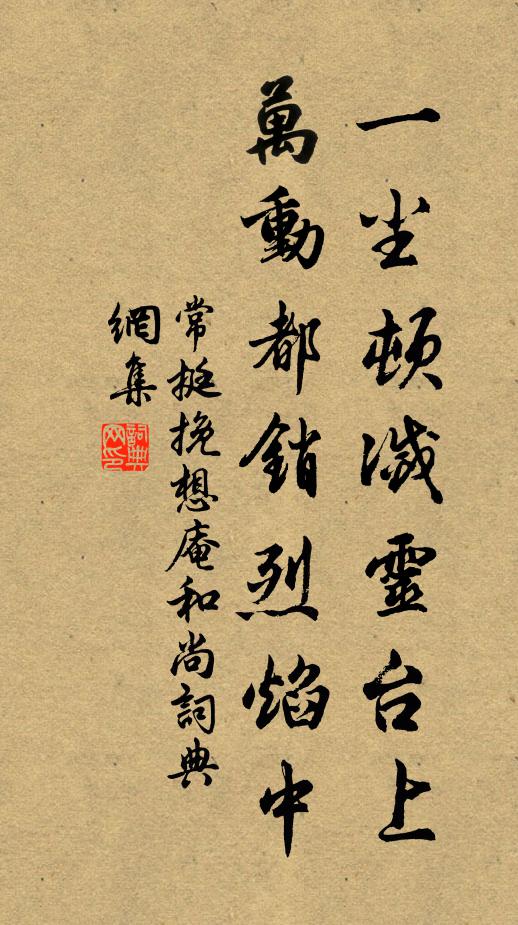 一尘顿滅靈台上
萬動都銷烈焰中
常挺挽想庵和尚詞典
網集
詞典網印